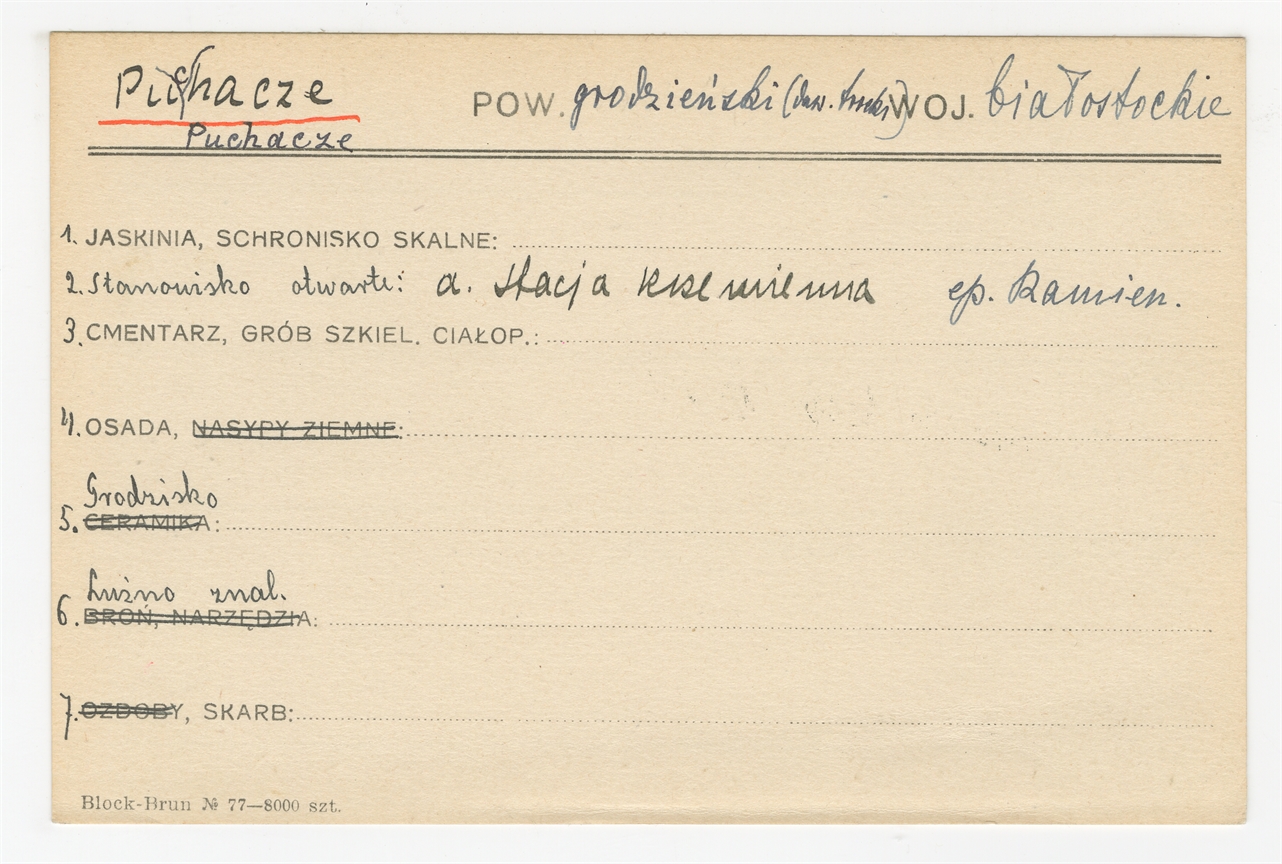 Puchacze
Puchacze
POW. grodzieński (daw. trocki) WOJ. białostockie
1. JASKINIA, SCHRONISKO SKALNE:
2. Stanowisko otwarte: a. stacja krzemienna ep. kamien.
3. CMENTARZ, GRÓB SZKIEL. CIAŁOP.:
4. OSADA, NASYPY ZIEMNE:
Grodzisko
5. CERAMIKA:
Luźno znal.
6. BROŃ, NARZĘDZIA:
7. OZDOBY, SKARB:
Block-Brun № 77—8000 szt.